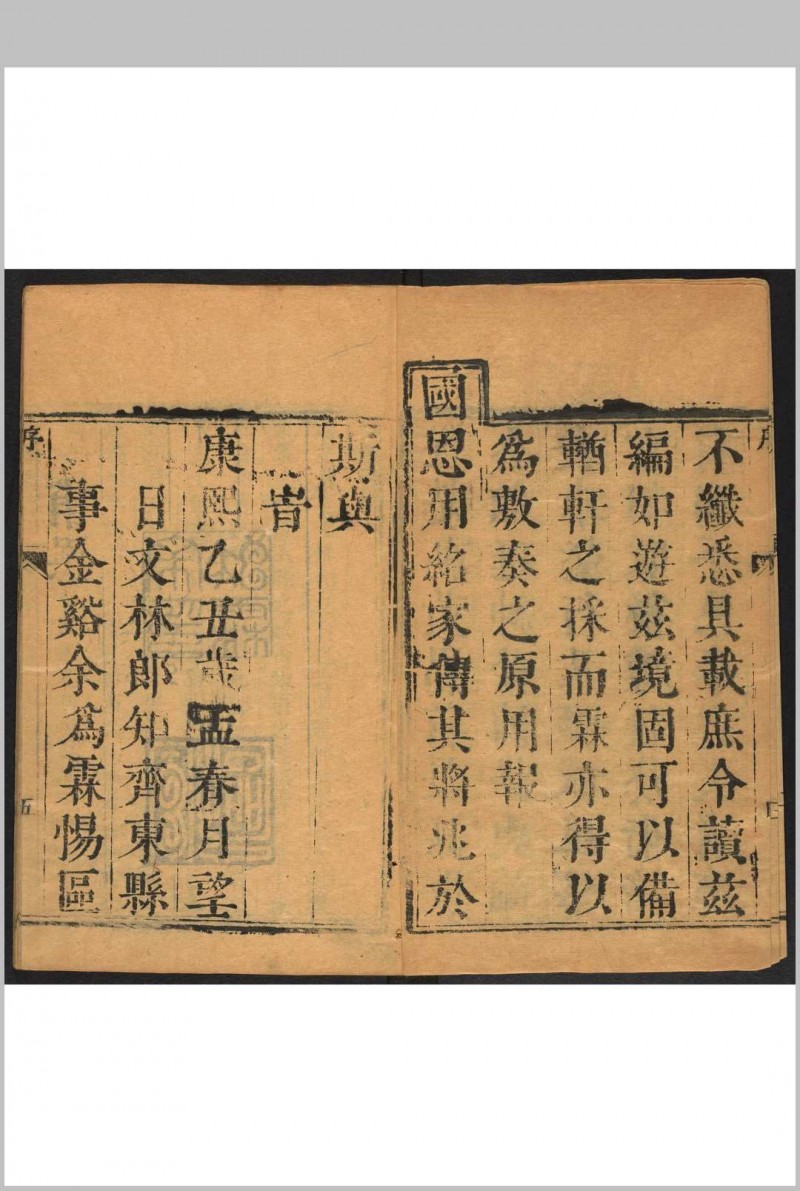 序
不纖悉具載庶令讀茲
編如遊茲境固可以備
輶軒之採而霖亦得以
為敷奏之原用報
國恩用紹家傳其將兆於
斯與
旹
康熙乙丑歲孟春月望
日文林郎知齊東縣
事金谿余為霖惕區
序
五